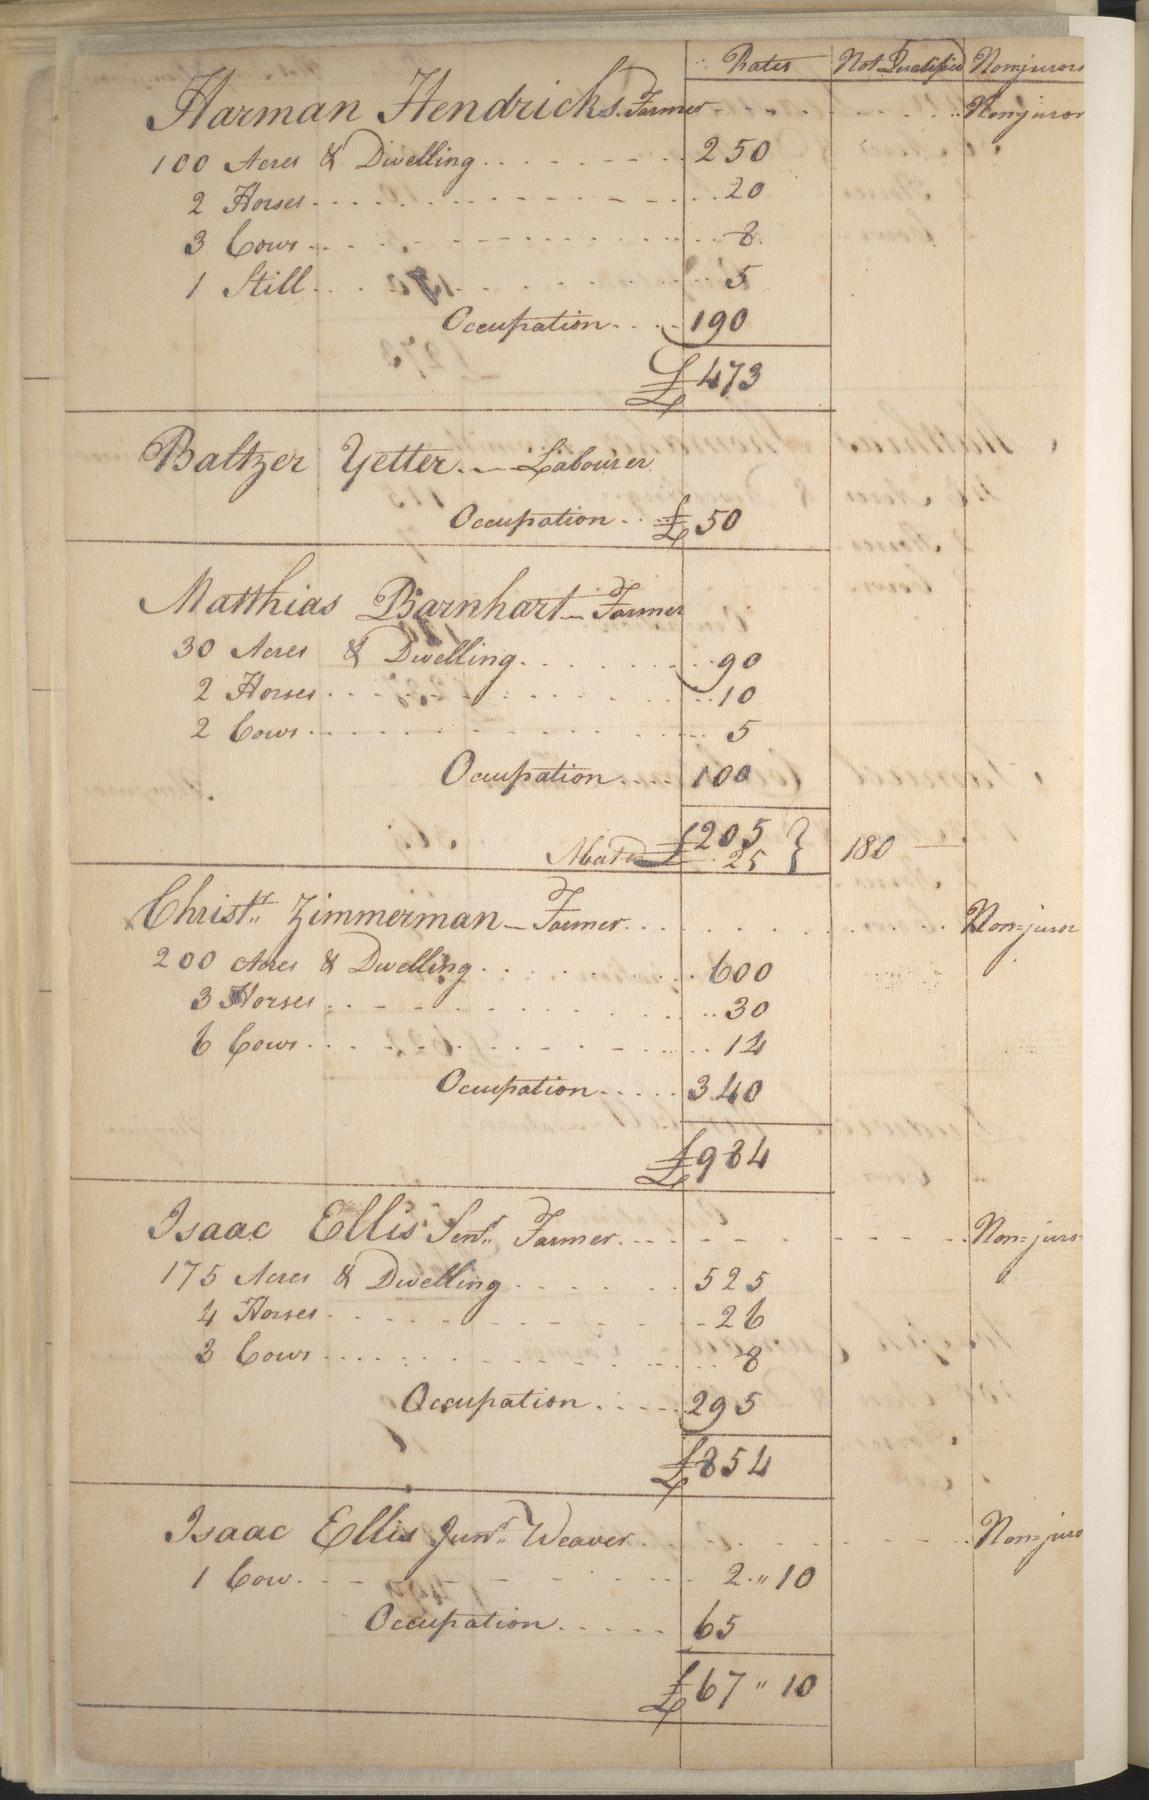 Rates Not Qualified Nonjurors
Harman Hendricks. Farmer Nonjuror
100 Acres & Dwelling 250
2 Horses 20
3 Cows 8
1 Still 5
Occupation 190
£473
Baltzer Yetter Labourer
Occupation £50
Matthias Barnhart Farmer
30 Acres & Dwelling 90
2 Horses 10
2 Cows 5
Occupation 100
£205
Abated 25 } 180
Christr. Zimmerman Farmer Non=juror
200 Acres & Dwelling 600
3 Horses 30
6 Cows 14
Occupation 340
£984
Isaac Ellis Senr. Farmer Non=juror
175 Acres & Dwelling 525
4 Horses 26
3 Cows 8
Occupation 295
£854
Isaac Ellis Junr. Weaver Non=juro
1 Cow 2 " 10
Occupation 65
£67 " 10